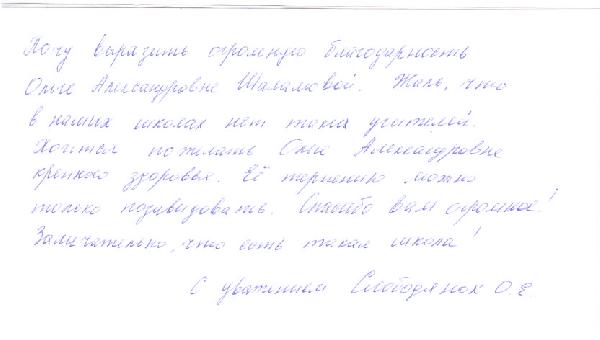 Хочу выразить огромную благодарность
Ольге Александровне Шаламовой. Жаль, что
в наших школах нет таких учителей.
Хочется пожелать Ольге Александровне
крепкого здоровья. Её терпению можно
только позавидовать. Спасибо Вам огромное!
Замечательно, что есть такая школа!
С уважением Слободянюк О.Е.